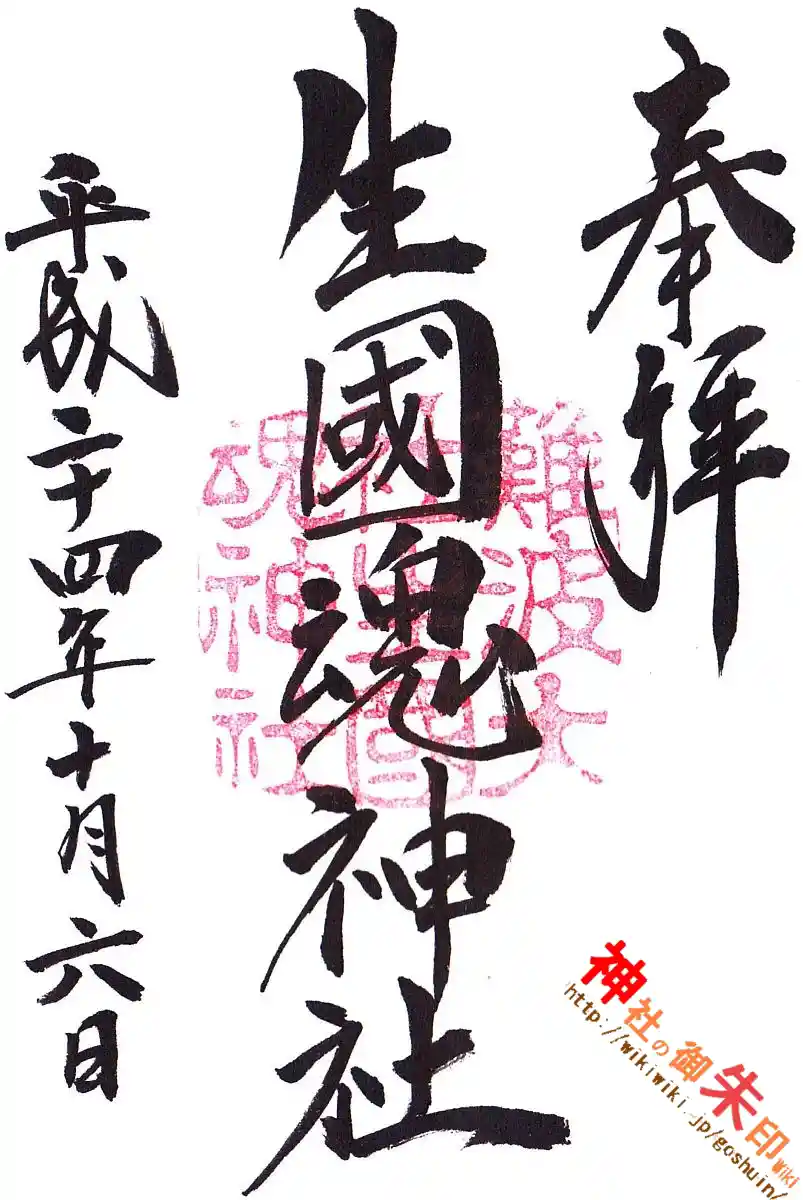 奉拝
生國魂神社
難波大
社生國
魂神社
平成二十四年十月六日
神社の御朱印Wiki
http://wikiwiki.jp/goshuin/